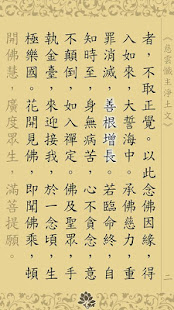 《慈雲懺主淨土文》 二
者，不取正覺。以此念佛因緣，得
入如來，大誓海中。承佛慈力，眾
罪消滅，善根增長。若臨命終，自
知時至，身無病苦，心不貪戀，意
不顛倒，如入禪定。佛及聖眾，手
執金臺，來迎接我，於一念頃，生
極樂國。花開見佛，即聞佛乘，頓
開佛慧，廣度眾生，滿菩提願。